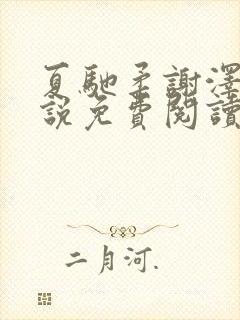 夏馳柔謝澤
説免費閱讀
二月河.